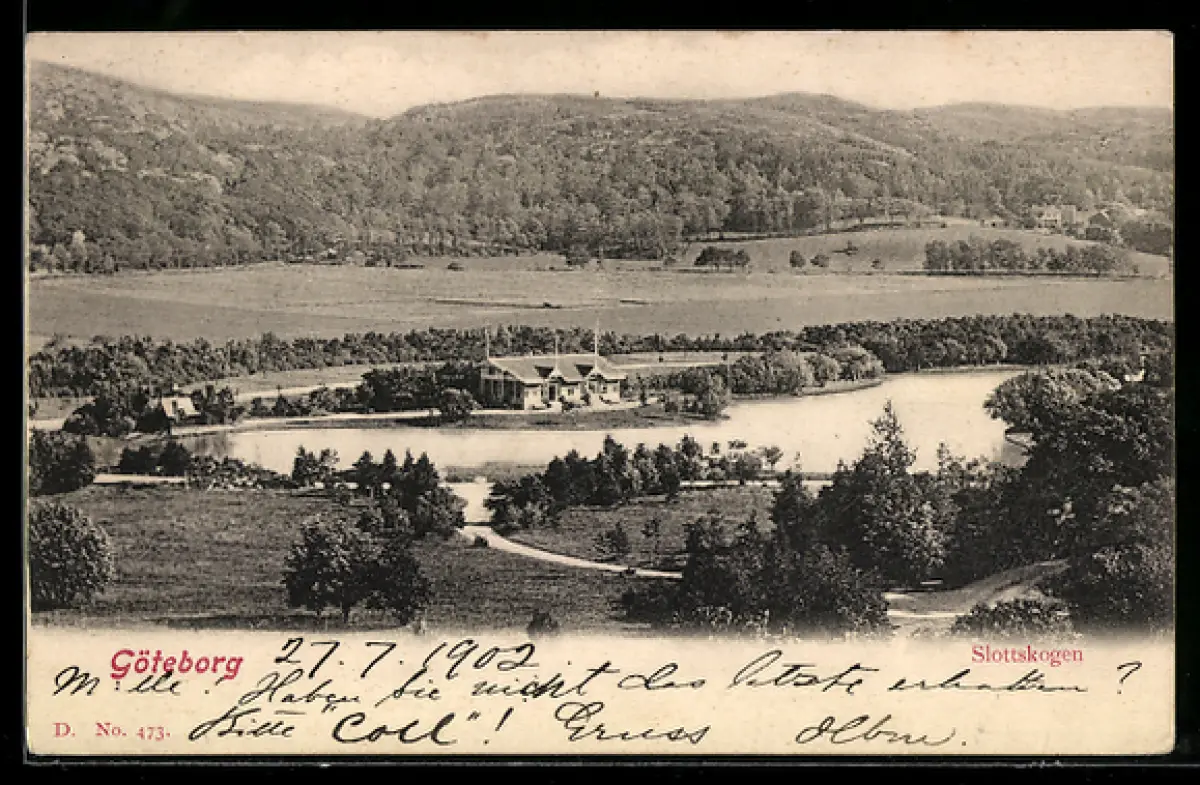 Göteborg 27.7.1902. Slottskogen
Mlle! Haben Sie nicht das letzte erhalten?
D. No. 473. Bitte "Coll"! Gruss